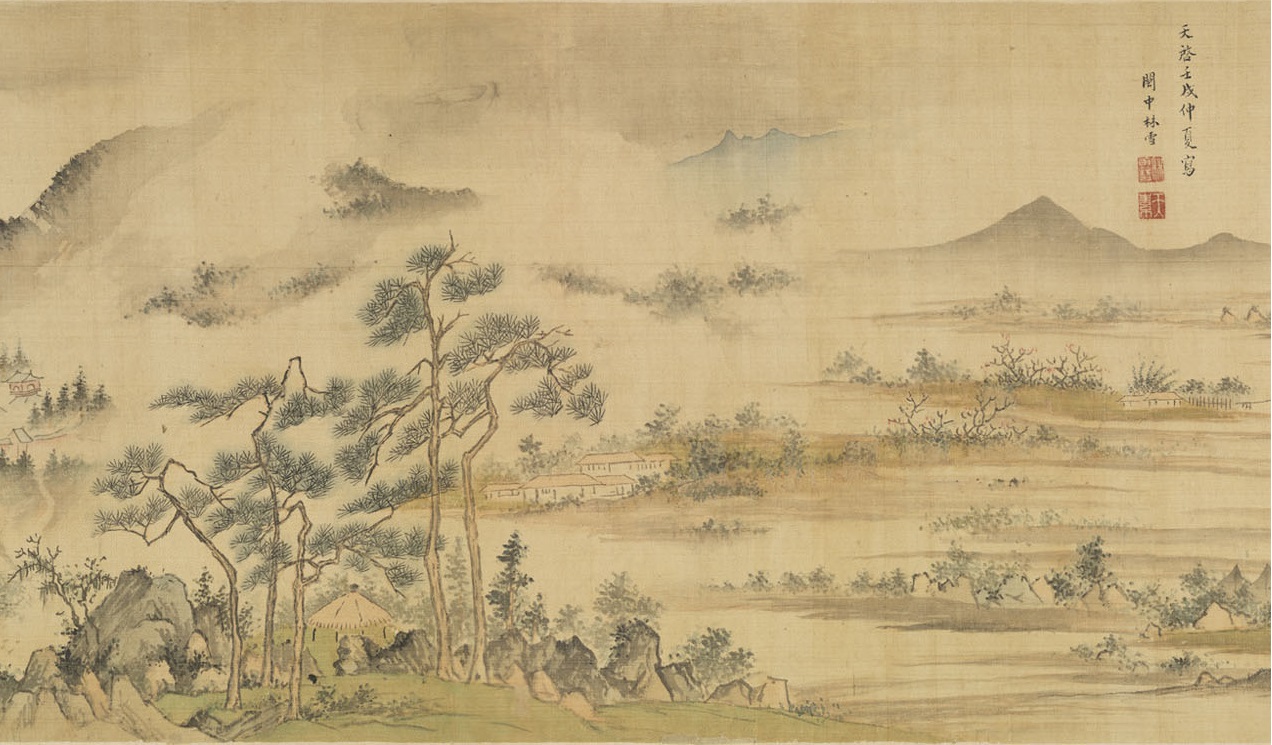 天啓壬戌仲夏寫
閩中林雪